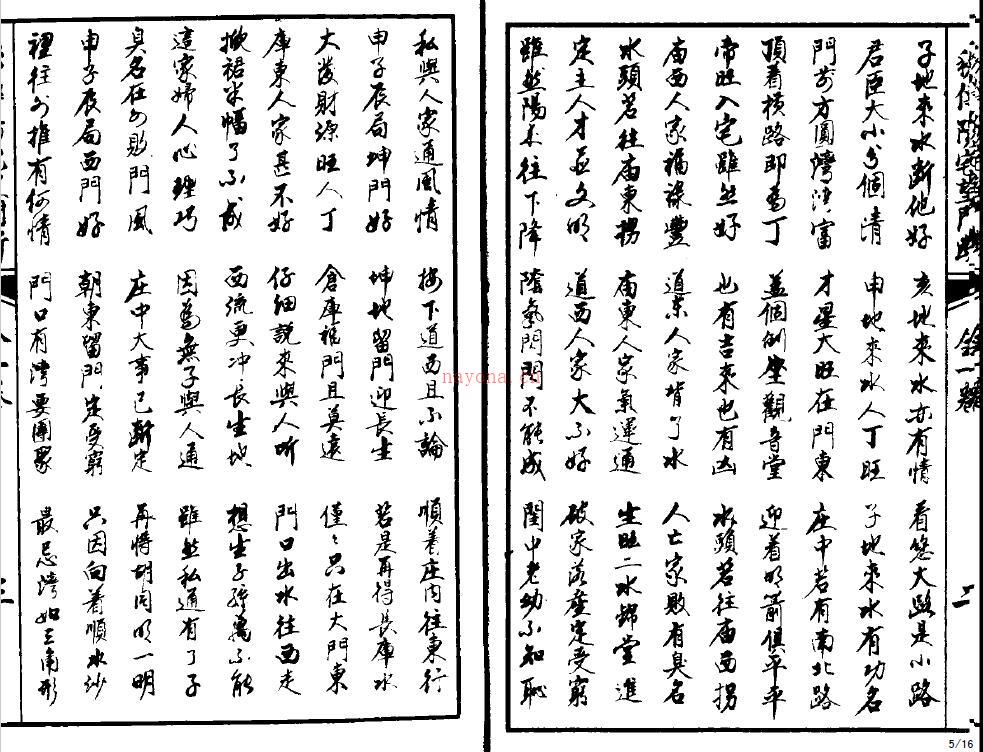 子地来水断他好 亥地来水亦有情 看您大路是小路
君臣大小分個清 申地来水人丁旺 子地来水有功名
門前方圓灣浮富 才星大旺在門東 庄中若有南北路
頂着横路即為丁 蓋個倒坐觀音堂 迎着明箭俱平平
帝旺入宅雖然好 也有吉来也有凶 水頭若往庙西拐
庙西人家福禄豐 道东人家背了水 人亡家敗有臭名
水頭若往庙東拐 庙東人家氣運通 生旺二水歸堂進
定主人才並文明 道西人家大不好 破家落産定受窮
雖然陽来往下降 陰氣閃開不能成 閨中老幼不知恥
私與人家通風情 按下道西且不論 順着庄内往東行
申子辰局坤門好 坤地留門迎長生 若是再得長庫水
大發財源旺人丁 倉庫福門且莫遠 僅僅只在大門東
庫東人家甚不好 仔细說来與人听 門口出水往西走
掀裙半幅了不成 西流更冲長生地 想生子孫萬不能
這家婦人心理巧 因為無子與人通 雖然私通有了子
臭名在外敗門風 庄中大事已断定 再將胡同明一明
申子辰局西門好 朝東留門定受窮 只因向着順水紗
裡往外推有何情 門口有灣要團聚 最忌灣如三角形
二
三
nayona.cn
5/16